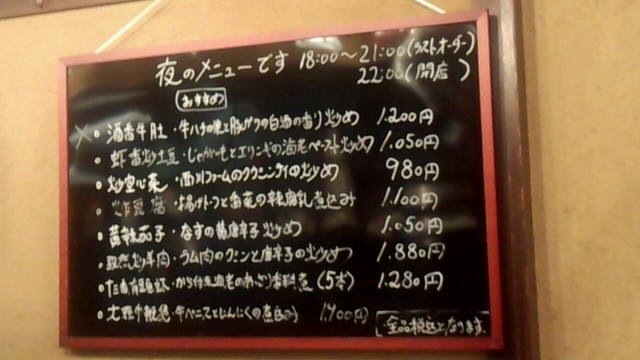 夜のメニューです 18:00〜21:00(ラストオーダー)
22:00(閉店)
おすすめ
× • 酒香牛肚・牛ハチの巣と豚ガツの白酒の香り炒め 1.200円
• 虾香炒土豆・じゃがいもとエリンギの海老ペースト炒め 1.050円
• 炒空心菜・西川ファームのククシンサイの炒め 980円
• 炸豆腐・揚げトーフと の辣腐乳煮込み 1.100円
• 苦辣茄子・なすの 唐辛子炒め 1.050円
• 炒羊肉・ラム肉のクミンと唐辛子の炒め 1.880円
• から付 海老の 煮(5本) 1.280円
• ・牛ペニスとにんにくの煮込み 1.700円
全品税込となります